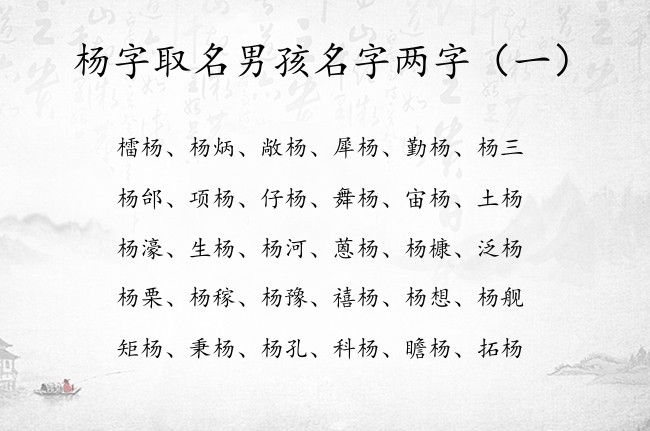 杨字取名男孩名字两字（一）
檑杨、杨炳、敞杨、犀杨、勤杨、杨三
杨邰、项杨、仔杨、舞杨、宙杨、土杨
杨濠、生杨、杨河、蒽杨、杨槺、泛杨
杨栗、杨稼、杨豫、禧杨、杨想、杨舰
矩杨、秉杨、杨孔、科杨、瞻杨、拓杨